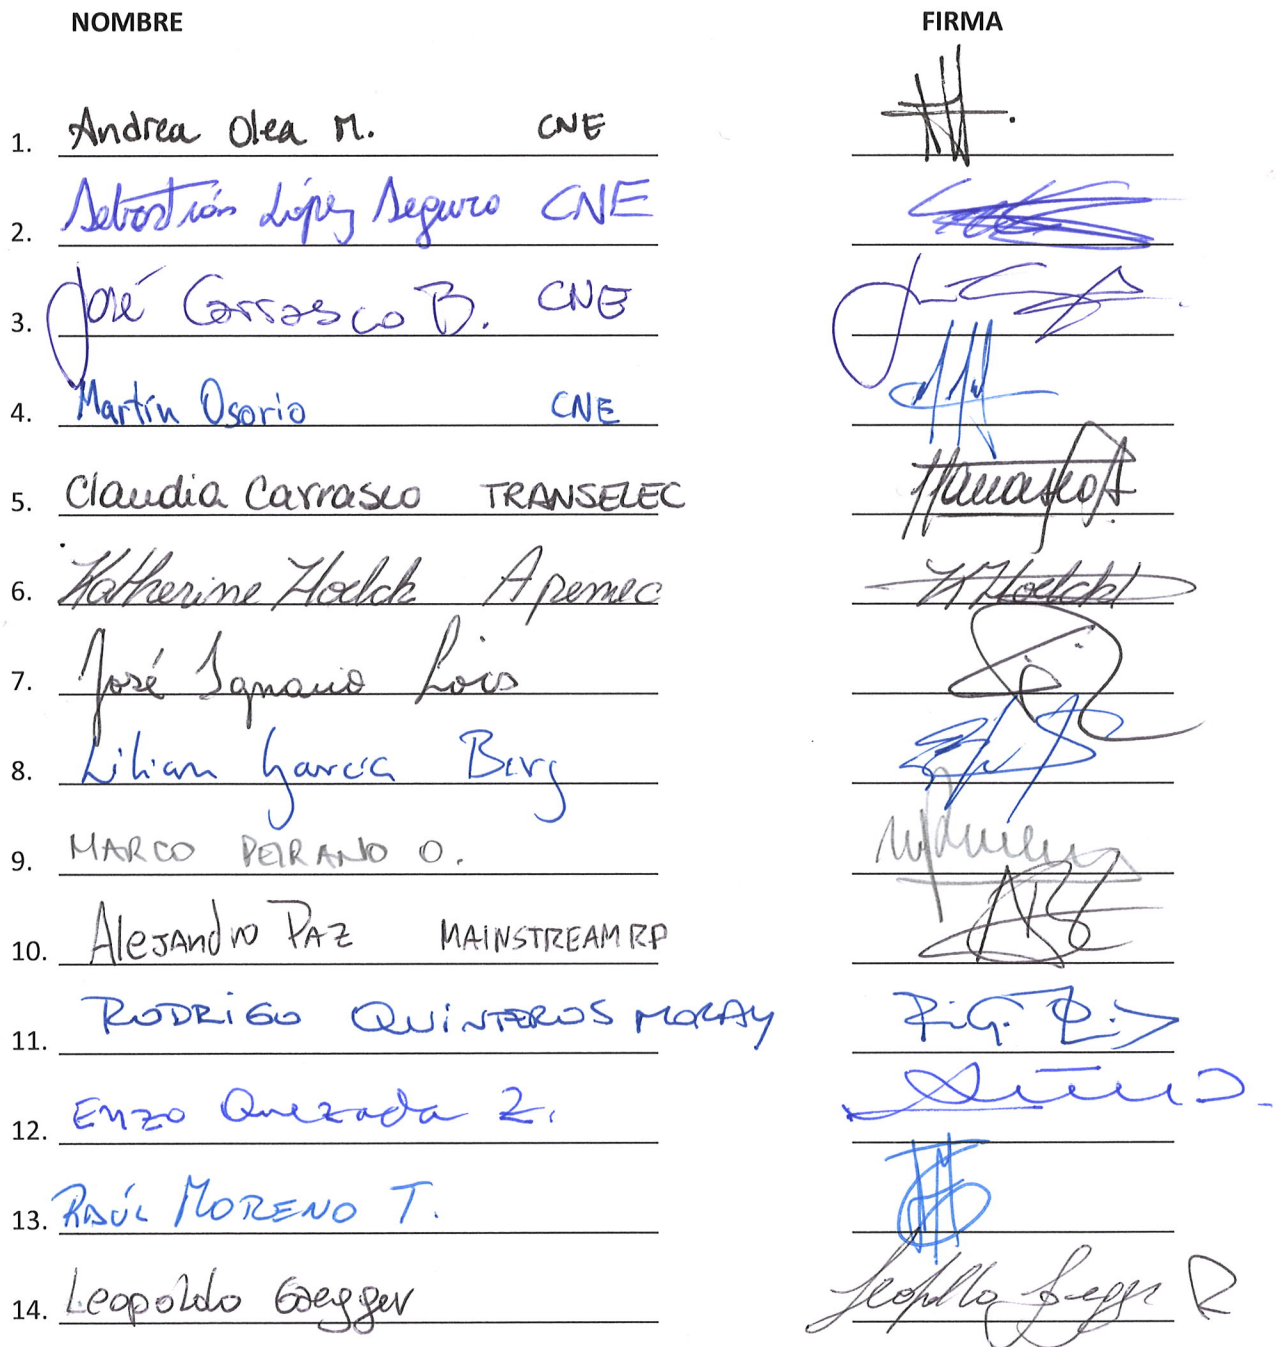 NOMBRE FIRMA
1. Andrea Olea M. CNE
2. Sebastián López Seguro CNE
3. José Carrasco B. CNE
4. Martín Osorio CNE
5. Claudia Carrasco TRANSELEC
6. Katherine Hoelck Apemec
7. José Ignacio Lois
8. Lilian García Berg
9. MARCO PEIRANO O.
10. Alejandro PAZ MAINSTREAM RP
11. RODRIGO QUINTEROS MORAY
12. Enzo Quezada Z.
13. RAÚL MORENO T.
14. Leopoldo Gaegger